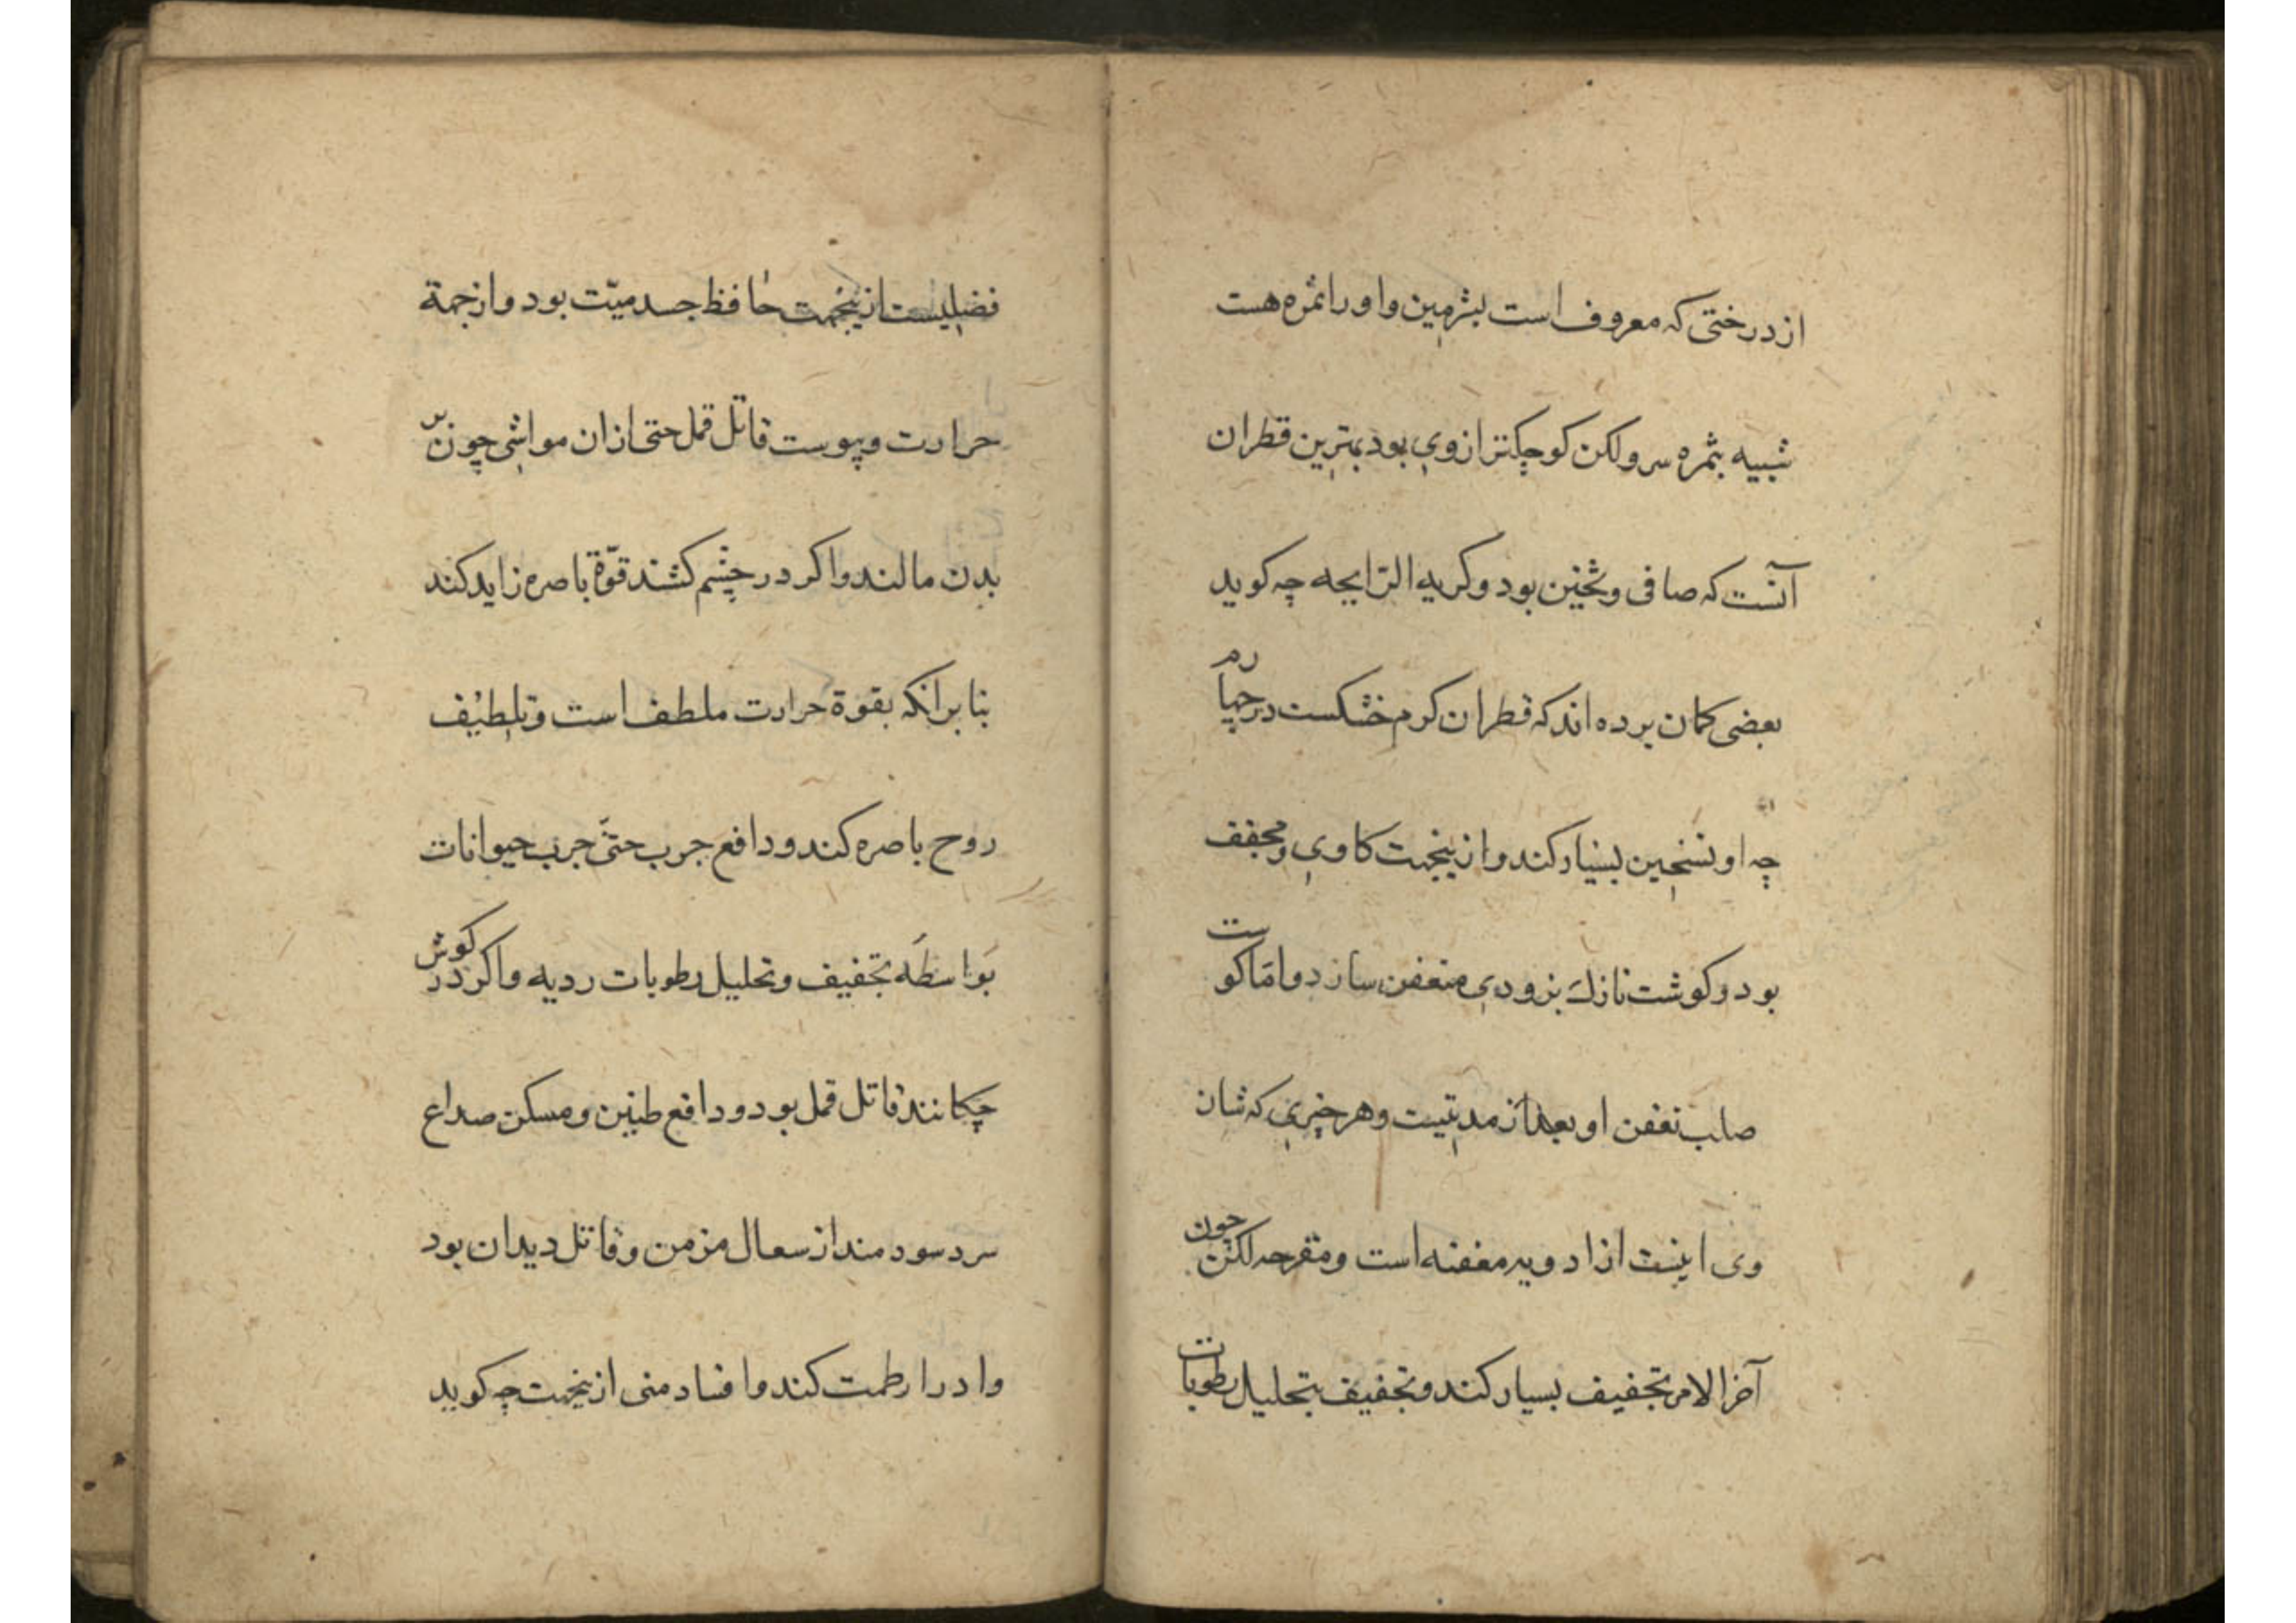 از درختی که معروف است بشرمین و او را ثمره هست
شبیه بثمره سرو لکن کوچکتر از وی بود بهترین قطران
آنست که صافی و ثخین بود و کریه الرایحه چه کوید
بعضی کمان برده اند که قطران کرم خشکست در چهارم
چه او تسخین بسیار کند و ازینجهت کاوی و مجفف
بود و کوشت نازک بزودی متعفن سازد و اما کوست
صلب تعفن او بعد از مدتیست و هر چیزی که شان
وی اینست از ادویه معفنه است و مقرحه لکن چون
آخر الامر تجفیف بسیار کند و تجفیف بتحلیل رطوبات
فضلیست ازینجهت حافظ جسد میّت بود و از جمة
حرارت و یبوست قاتل قمل حتی ازان مواشی چون بر
بدن مالند و اکر در چشم کشند قوّة باصره زاید کند
بنا بر انکه بقوة حرارت ملطف است و تلطیف
روح باصره کند و دافع جرب حتّی جرب حیوانات
بواسطه تجفیف و تحلیل رطوبات ردیه و اکر در کوش
چکانند قاتل قمل بود و دافع طنین و مسکن صداع
سرد سودمند از سعال مزمن و قاتل دیدان بود
و ادرار طمث کند و افساد منی ازینجهت چه کوید